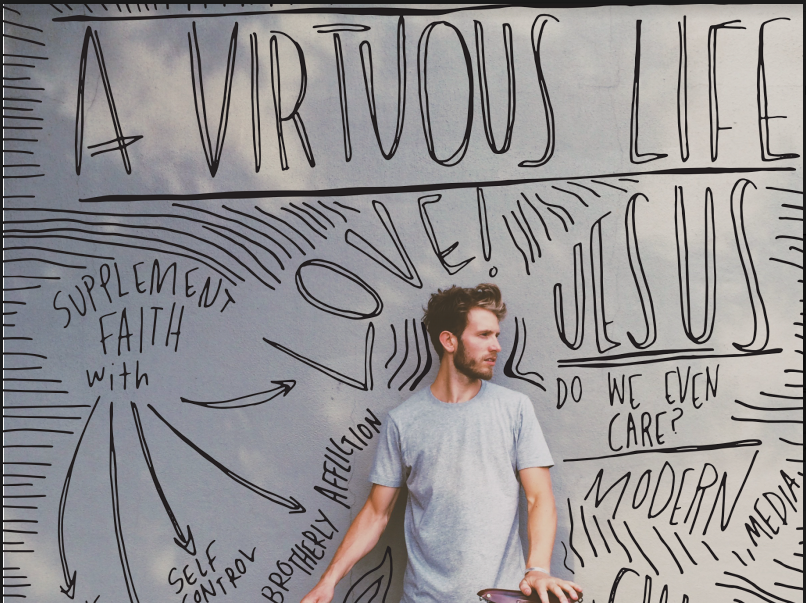 A VIRTUOUS LIFE
LOVE!
JESUS
SUPPLEMENT
FAITH
with
DO WE EVEN
CARE?
BROTHERLY AFFLICTION
MODERN
MEDIA,
SELF
CONTROL